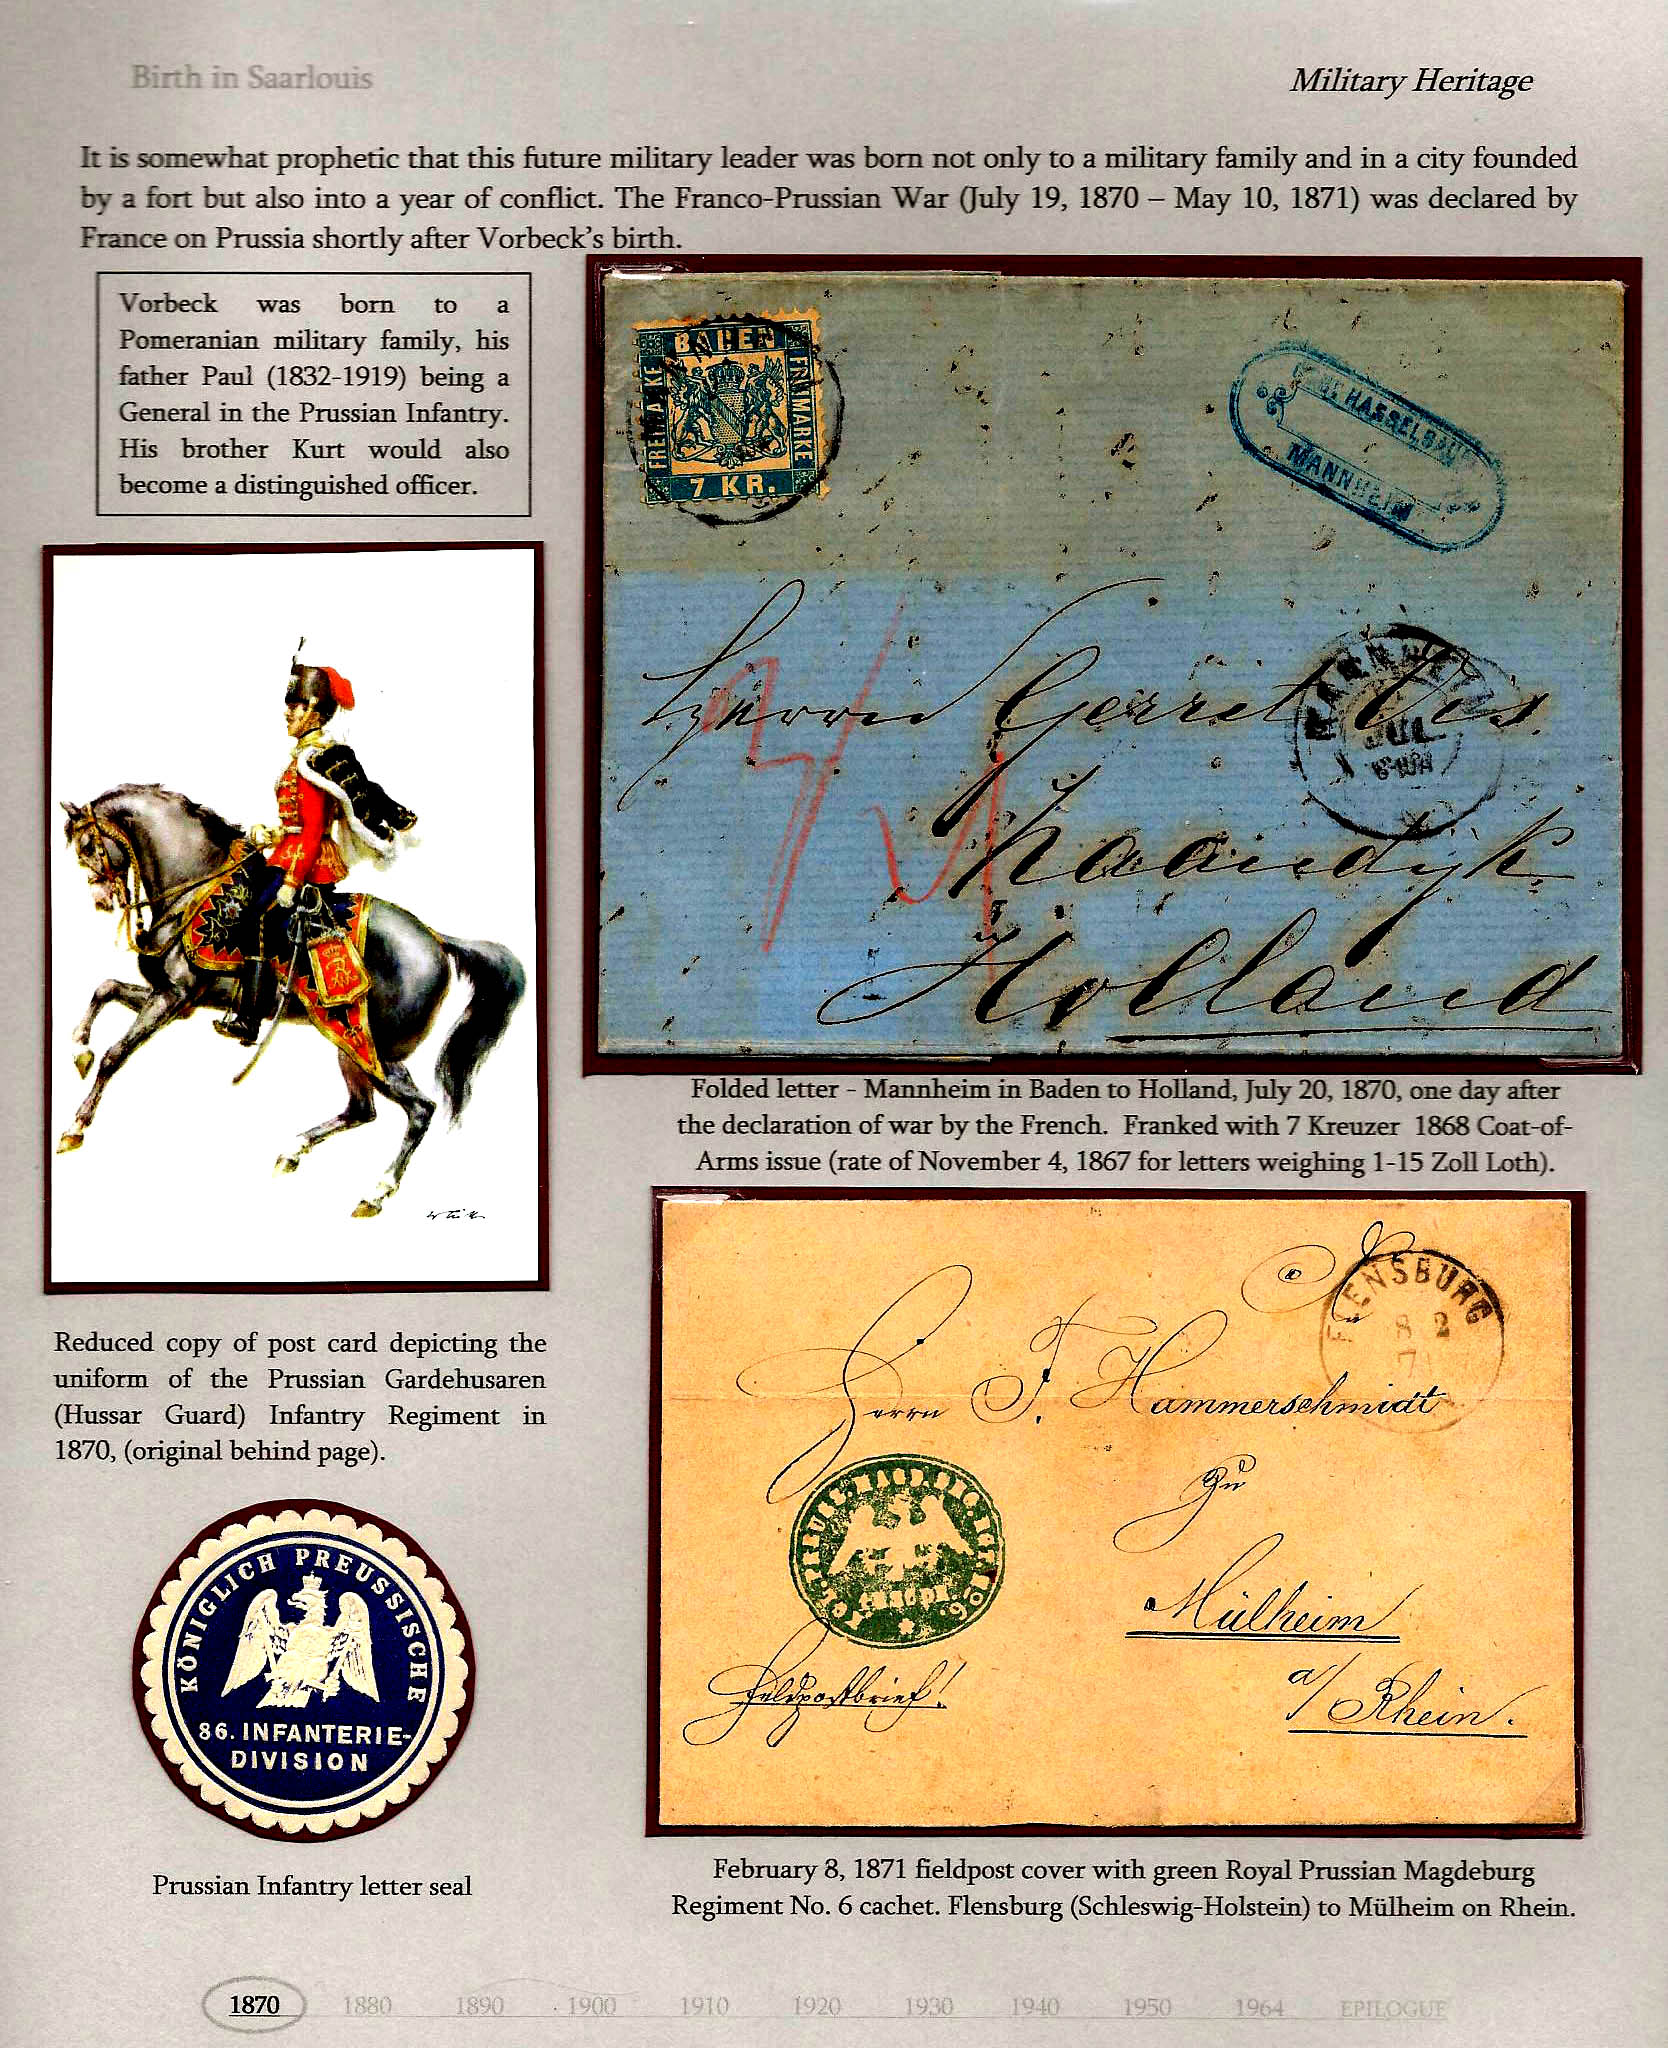 Birth in Saarlouis
Military Heritage
It is somewhat prophetic that this future military leader was born not only to a military family and in a city founded
by a fort but also into a year of conflict. The Franco-Prussian War (July 19, 1870 – May 10, 1871) was declared by
France on Prussia shortly after Vorbeck's birth.
Vorbeck was born to a
Pomeranian military family, his
father Paul (1832-1919) being a
General in the Prussian Infantry.
His brother Kurt would also
become a distinguished officer.
BADEN
FREIMARKE
FREIMARKE
7 KR.
HASSELBAUM
MANNHEIM
MANNHEIM
JUL
Herrn Gerret Vis
Zaandyk
Holland
Folded letter - Mannheim in Baden to Holland, July 20, 1870, one day after
the declaration of war by the French. Franked with 7 Kreuzer 1868 Coat-of-
Arms issue (rate of November 4, 1867 for letters weighing 1-15 Zoll Loth).
Reduced copy of post card depicting the
uniform of the Prussian Gardehusaren
(Hussar Guard) Infantry Regiment in
1870, (original behind page).
FLENSBURG
8 2
71
Herrn F. Hammerschmidt
Zu
Mülheim
a/ Rhein.
Feldpostbrief!
KÖNIGLICH PREUSSISCHE
86. INFANTERIE-
DIVISION
Prussian Infantry letter seal
February 8, 1871 fieldpost cover with green Royal Prussian Magdeburg
Regiment No. 6 cachet. Flensburg (Schleswig-Holstein) to Mülheim on Rhein.
1870 1880 1890 1900 1910 1920 1930 1940 1950 1964 EPILOGUE